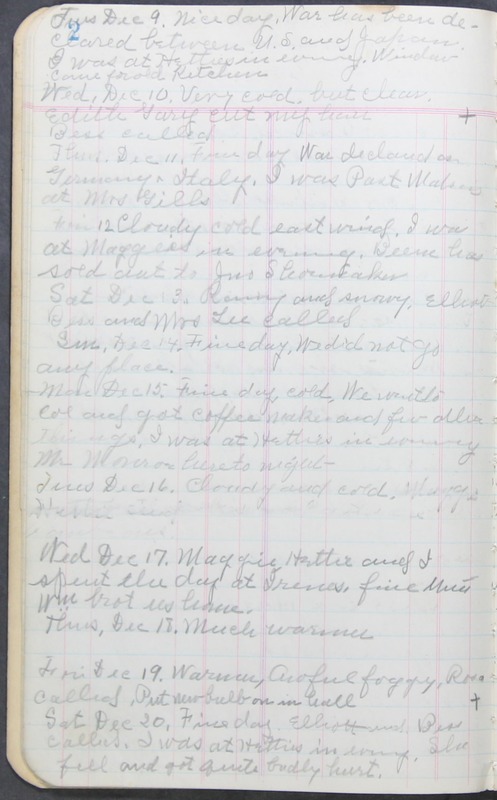 2
Tues Dec 9. Nice day. War has been de-
clared between U.S. and Japan.
I was at Hetties in evning. Window
came for old Kitchen
Wed, Dec 10. Very cold, but clear.
Edith Gary cut my hair +
Bess called
Thurs. Dec 11. Fine day War declared on
Germany & Italy. I was Past Matrons
at Mrs Gills
Fri 12 Cloudy cold east wind. I was
at Maggies in evning. Deem has
sold out to Jno Shoemaker
Sat Dec 13. Rainy and snowy. Elliott
Bess and Mrs Lee called
Sun, Dec 14. Fine day, We did not go
any place.
Mon Dec 15. Fine day, cold, We went to
Col and got coffee maker and few other
things, I was at Hetties in evning
Mr Monroe here to night
Tues Dec 16. Cloudy and cold, Maggie
Wed Dec 17. Maggie, Hettie and I
spent the day at Irenes. fine time
Wm brot us home.
Thurs, Dec 18. Much warmer
Fri Dec 19. Warmer, Awful foggy, Rosa
called, Put new bulb on in hall +
Sat Dec 20, Fine day Elliott and Bess
called. I was at Hetties in evning. She
fell and got quite badly hurt.